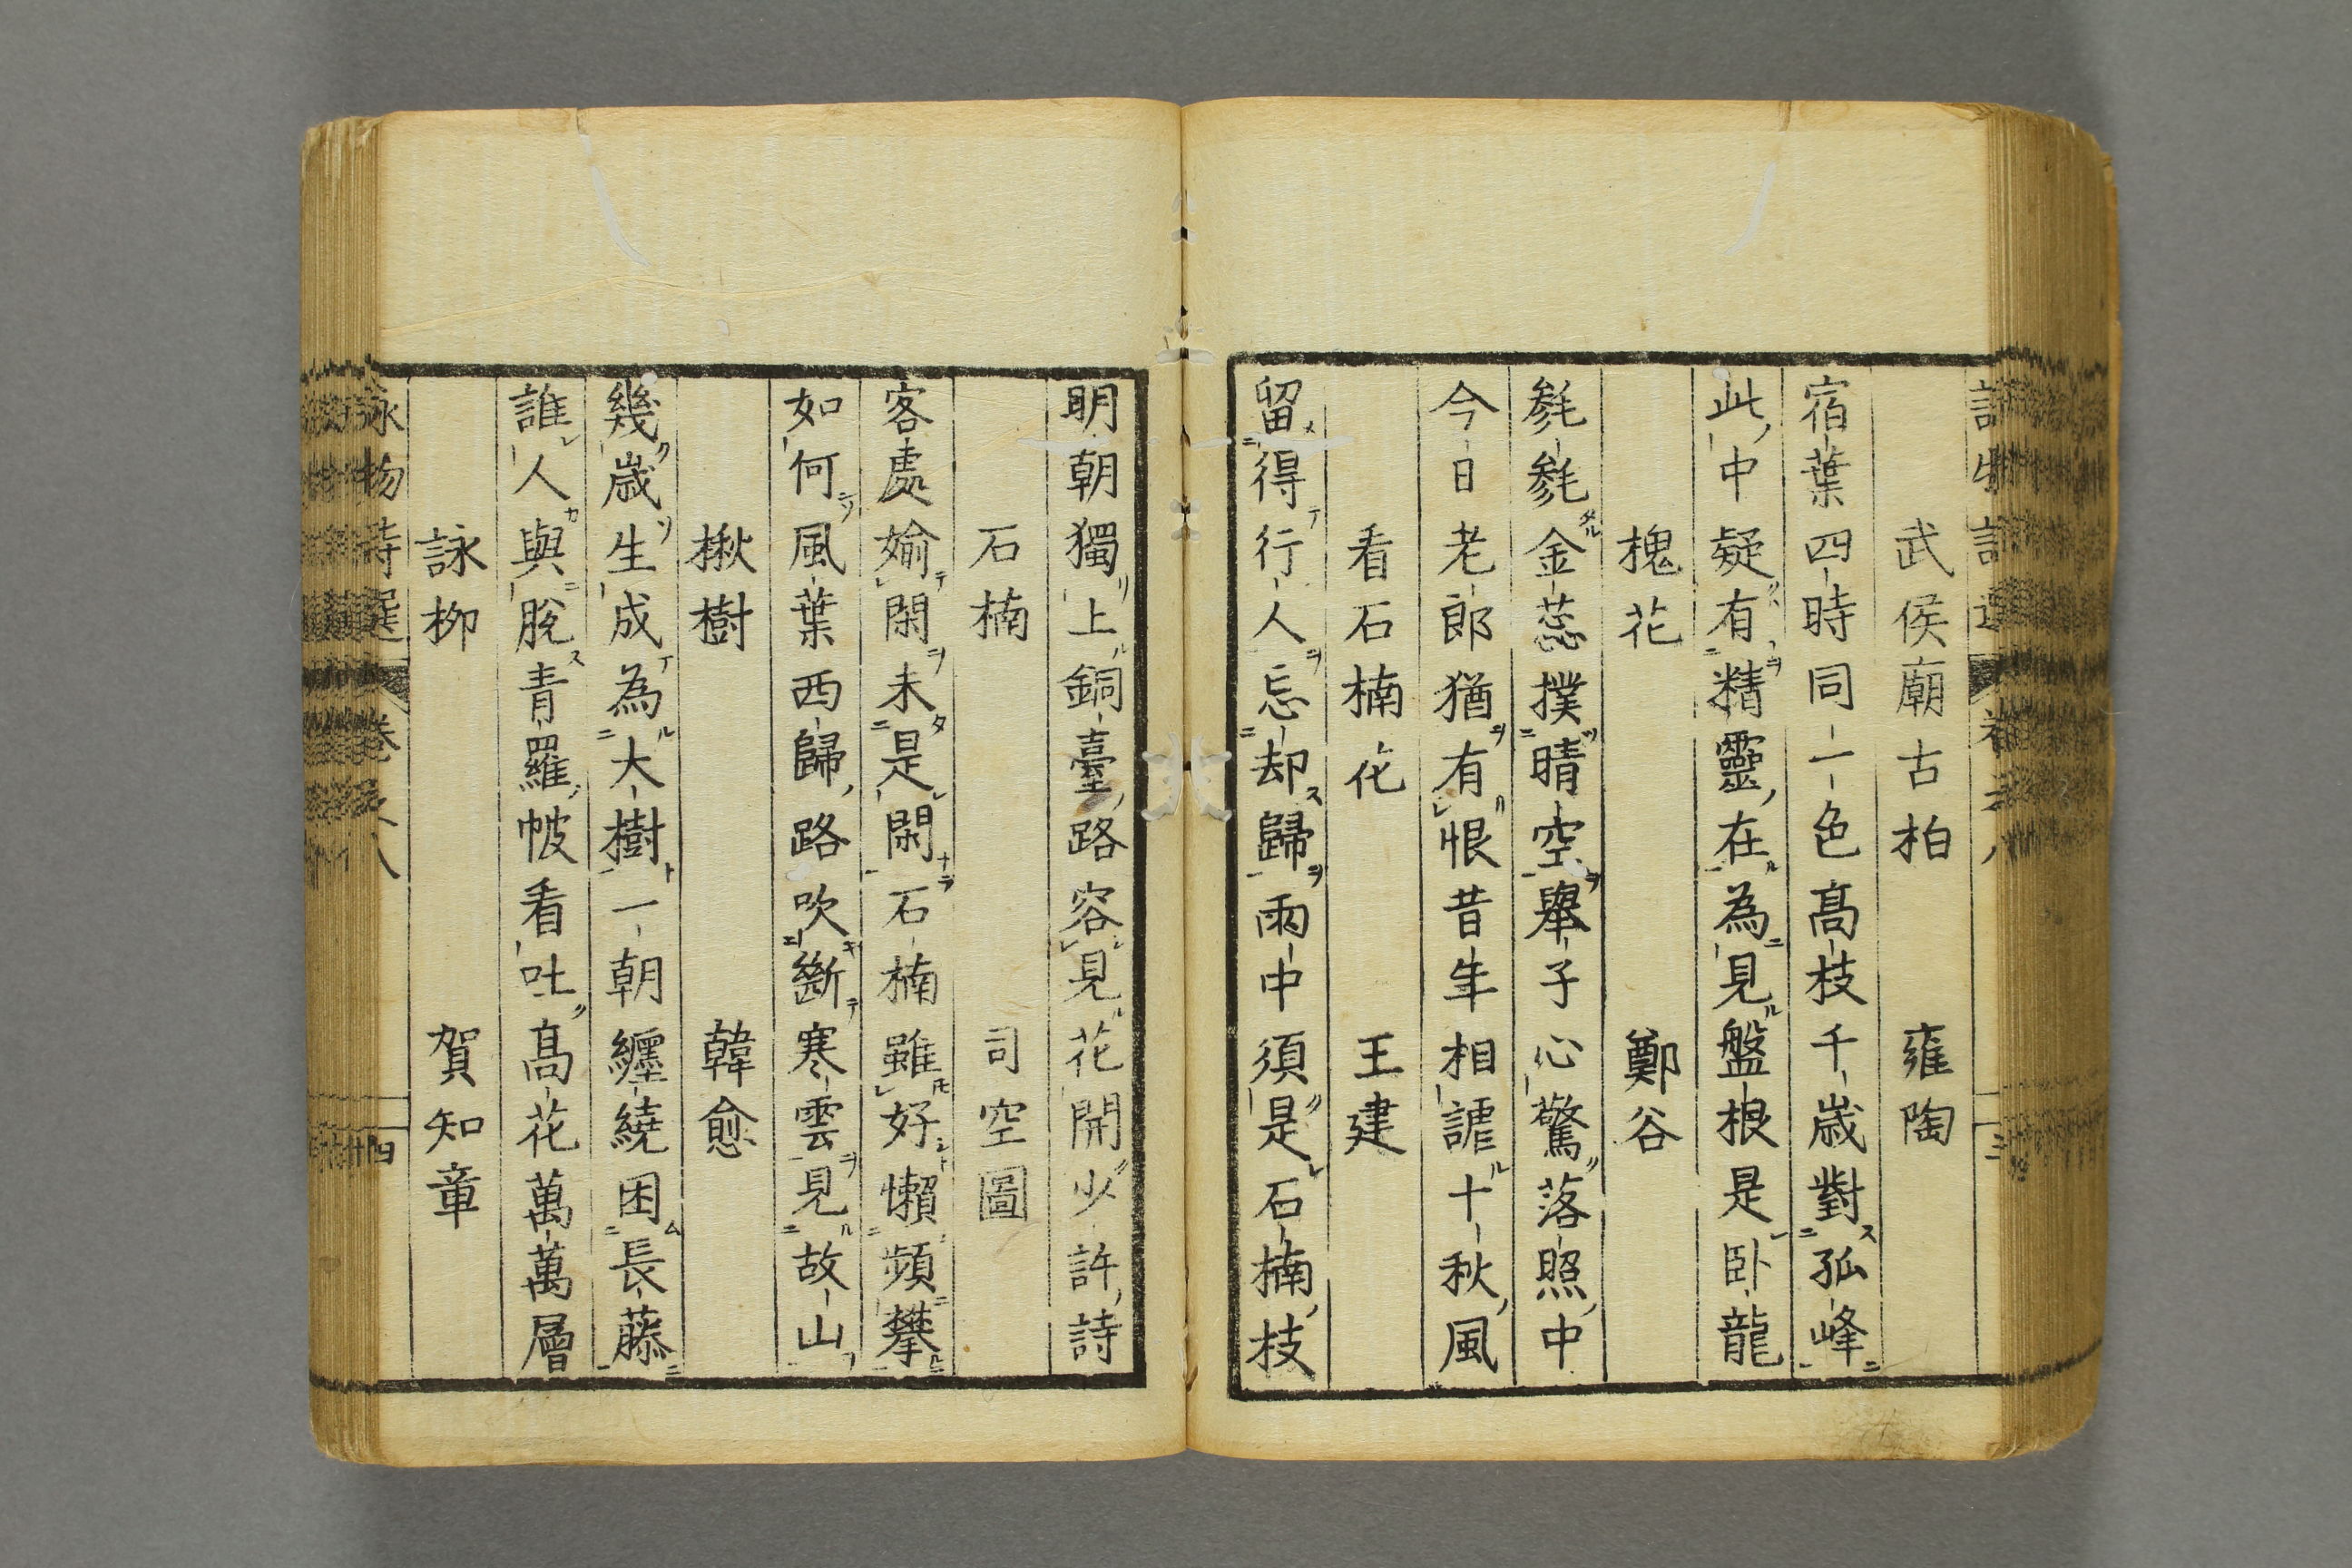 武侯廟古柏 雍陶
宿葉四時同一色髙枝千歳對孤峰
此中疑有精靈在為見盤根是卧龍
槐花 鄭谷
毿毿金蕊撲晴空舉子心驚落照中
今日老郎猶有恨昔年相謔十秋風
看石楠花 王建
留得行人忘却歸雨中須是石楠枝
明朝獨上銅臺路容見花開少許詩
石楠 司空圖
客處媮閑未是閑石楠雖好懶頻攀
如何風葉西歸路吹斷寒雲見故山
楸樹 韓愈
幾歳生成為大樹一朝纏繞困長藤
誰人與脫青羅帔看吐髙花萬萬層
詠柳 賀知章
詠物詩選 卷之八 四